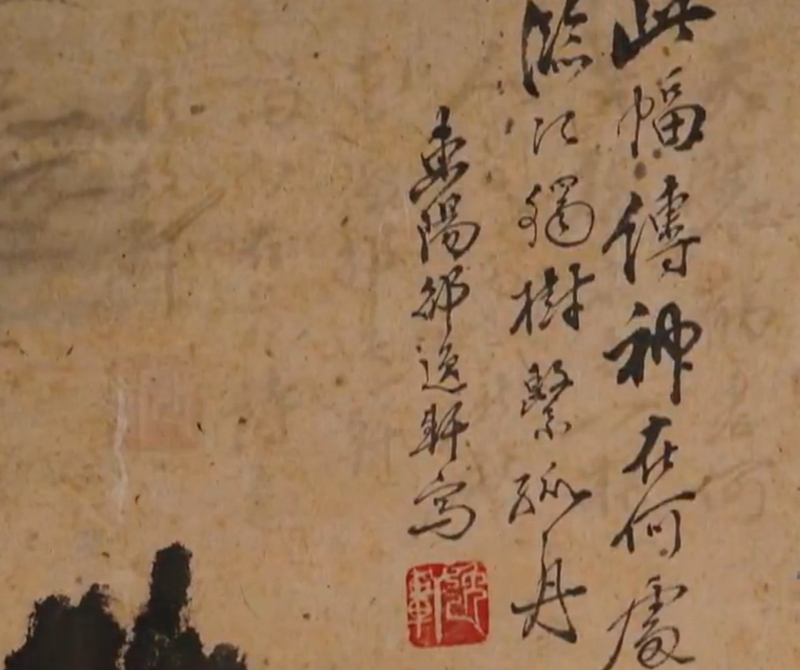 此幅傳神在何處
臨江獨樹繫孤舟
東陽邵逸軒寫
逸軒